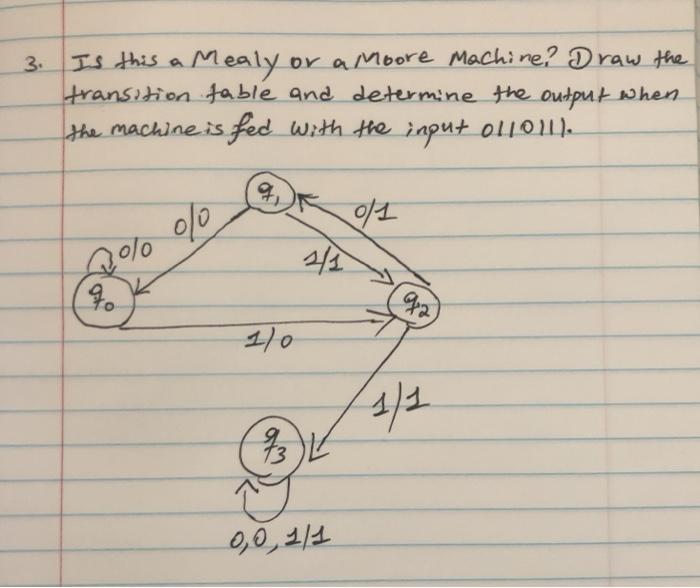 3. Is this a Mealy or a Moore Machine? Draw the
transition table and determine the output when
the machine is fed with the input 0110111.
q1
0/0
0/1
0/0
1/1
q0
q2
1/0
1/1
q3
0,0, 1/1